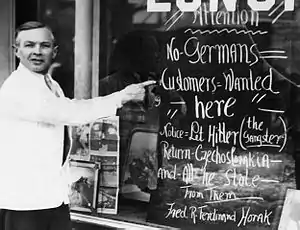 LUNCH
Attention
No-Germans
Customers=Wanted
here
Notice=Let Hitler (the Gangster)
Return-Czechoslovakia
and-All-he Stole
From Them
Fred R Ferdinand Horak